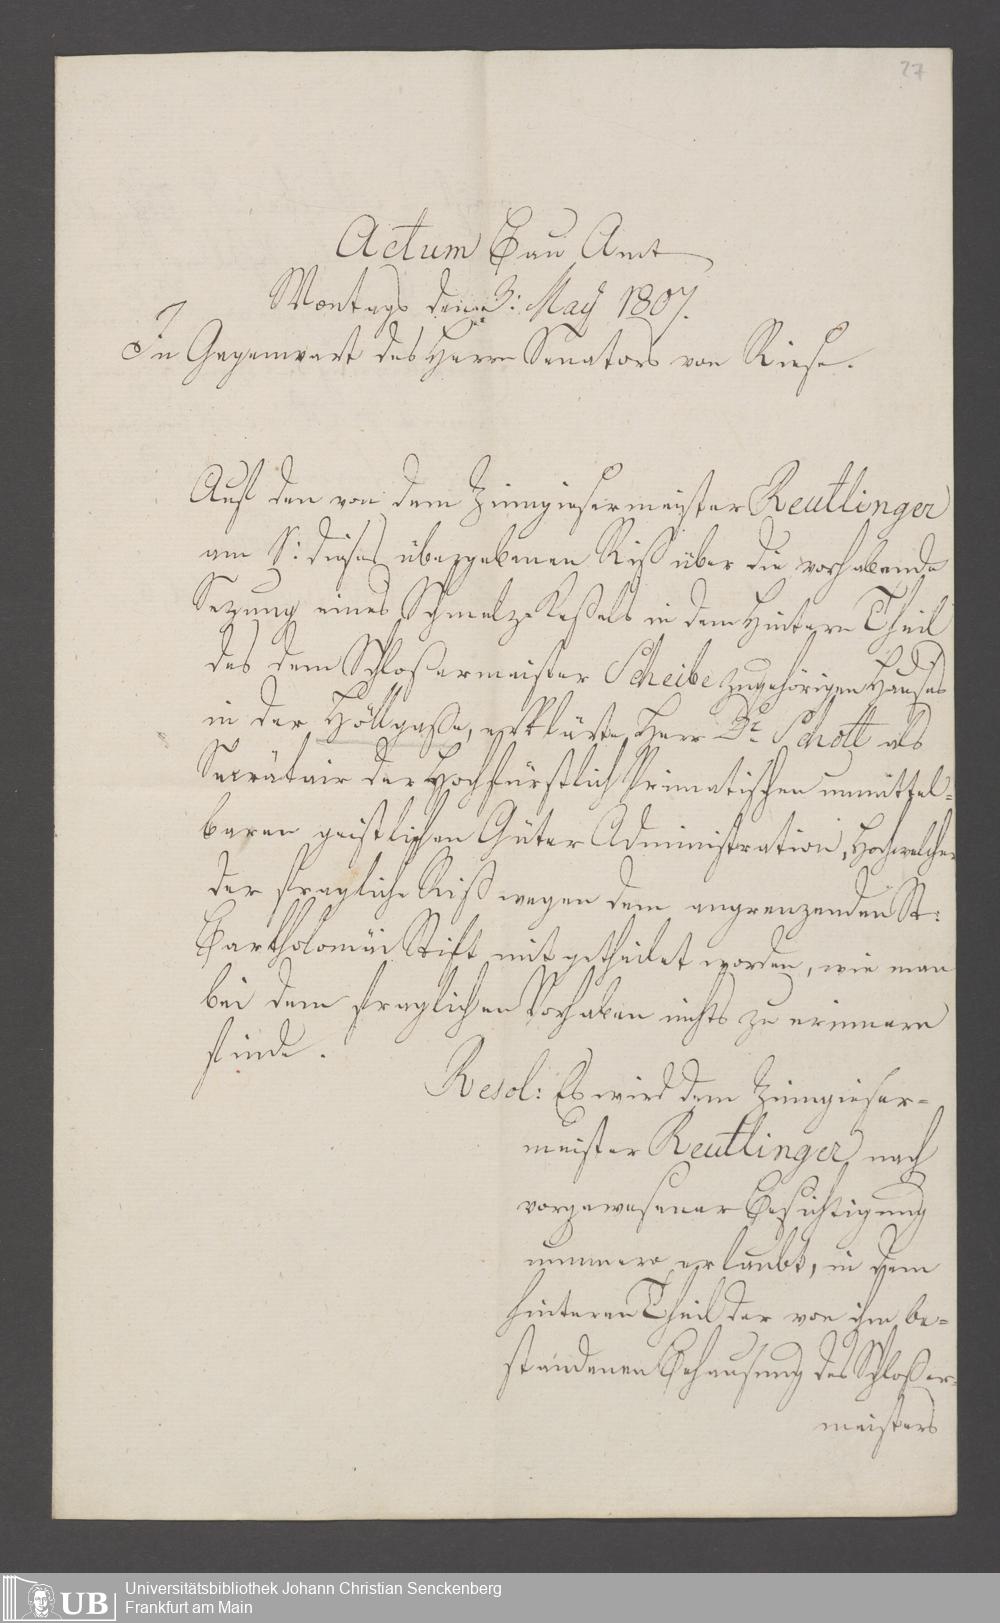 27
Actum Bau Amt
Montags den 3: May 1807.
In Gegenwart des Herrn Senators von Riese.
Auf den von dem Zinngiesermeister Reutlinger
am dieses übergebenen Riß über die vorhabende
Setzung eines Schmelz Keßels in dem hintern Theil
des dem Schloßermeister Scheibe zugehörigen Hauses
in der Höllgaße, erklärte Herr Dr. Schott als
Secrätair der Hochfürstlich Primatischen unmittel-
baren geistlichen Güter Administration, Hochwelcher
der fragliche Riß wegen dem angrenzenden St:
Bartholomäi Stift mitgetheilet worden, wie man
bei dem fraglichen Vorhaben nichts zu erinnern
finde.
Resol: Es wird dem Zinngieser-
meister Reutlinger nach
vorgewesener Besichtigung
nunmero erlaubt, in dem
hinteren Theil der von ihm be-
standenen Behausung des Schloßer-
meisters
UB
Universitätsbibliothek Johann Christian Senckenberg
Frankfurt am Main